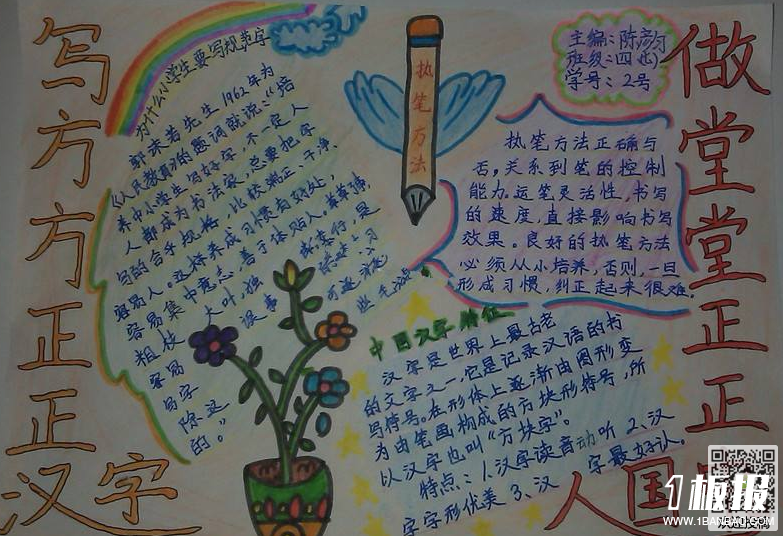 写方方正正汉字
做堂堂正正
人国
为什么小学生要写规范字
郭沫若先生1962年为
《人民教育》的题词就说:"培
养中小学生写好字,不一定人
人都成为书法家,总要把字
写的合乎规格,比较端正、干净、
容易人。这样养成习惯有好处,
容易集中意志,善于体贴人。草草
粗枝大叶,独
容易误事。
可逐渐
除这
的。"
执笔方法
主编:陈彦
班级:四
学号:2号
执笔方法正确与
否,关系到笔的控制
能力。运笔灵活性,书写
的速度,直接影响书写
效果。良好的执笔方法
必须从小培养,否则,一旦
形成习惯,纠正起来很难。
中国汉字特征
汉字是世界上最古老
的文字之一,它是记录汉语的书
写符号。在形体上逐渐由图形变
为由笔画构成的方块形符号,所
以汉字也叫"方块字"。
特点:1、汉字读音动听 2、汉
字字形优美 3、汉字最好认。
1板报
WWW.1BANBAO.COM